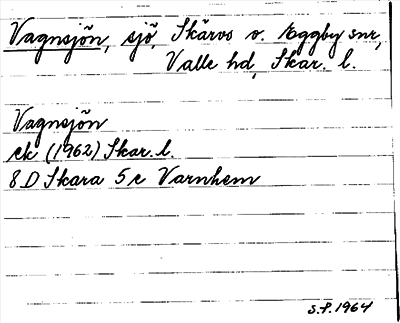 Vagnsjön, sjö, Skärvs o. Eggby snr,
Valle hd, Skar. l.
Vagnsjön
ek (1962) Skar. l.
8 D Skara 5 c Varnhem
S.P. 1964